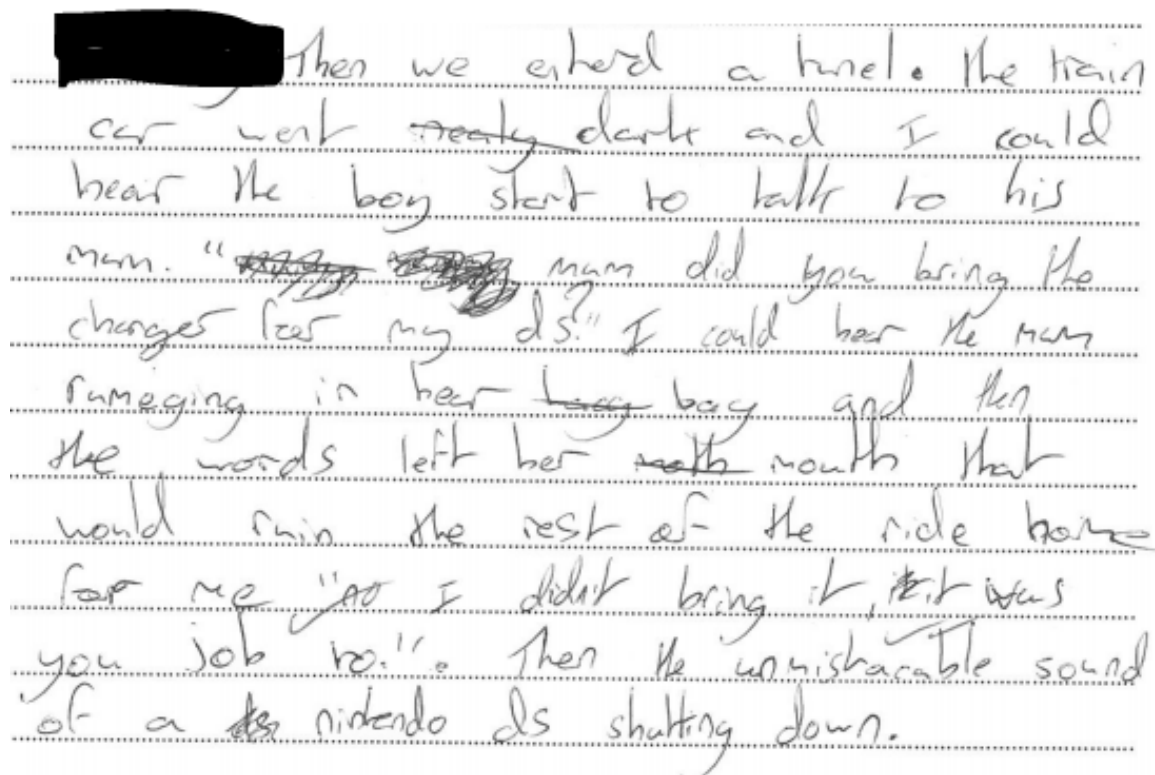 Then we enterd a tunel. the train
car went nealy dark and I could
hear the boy start to talk to his
mum. " mum did you bring the
charger for my ds?" I could hear the mum
rumeging in hear bag and then
the words left her moth mouth that
would ruin the rest of the ride home
for me "no I didn't bring it, it was
you job to.". Then the unmistacable sound
of a ds nintendo ds shutting down.